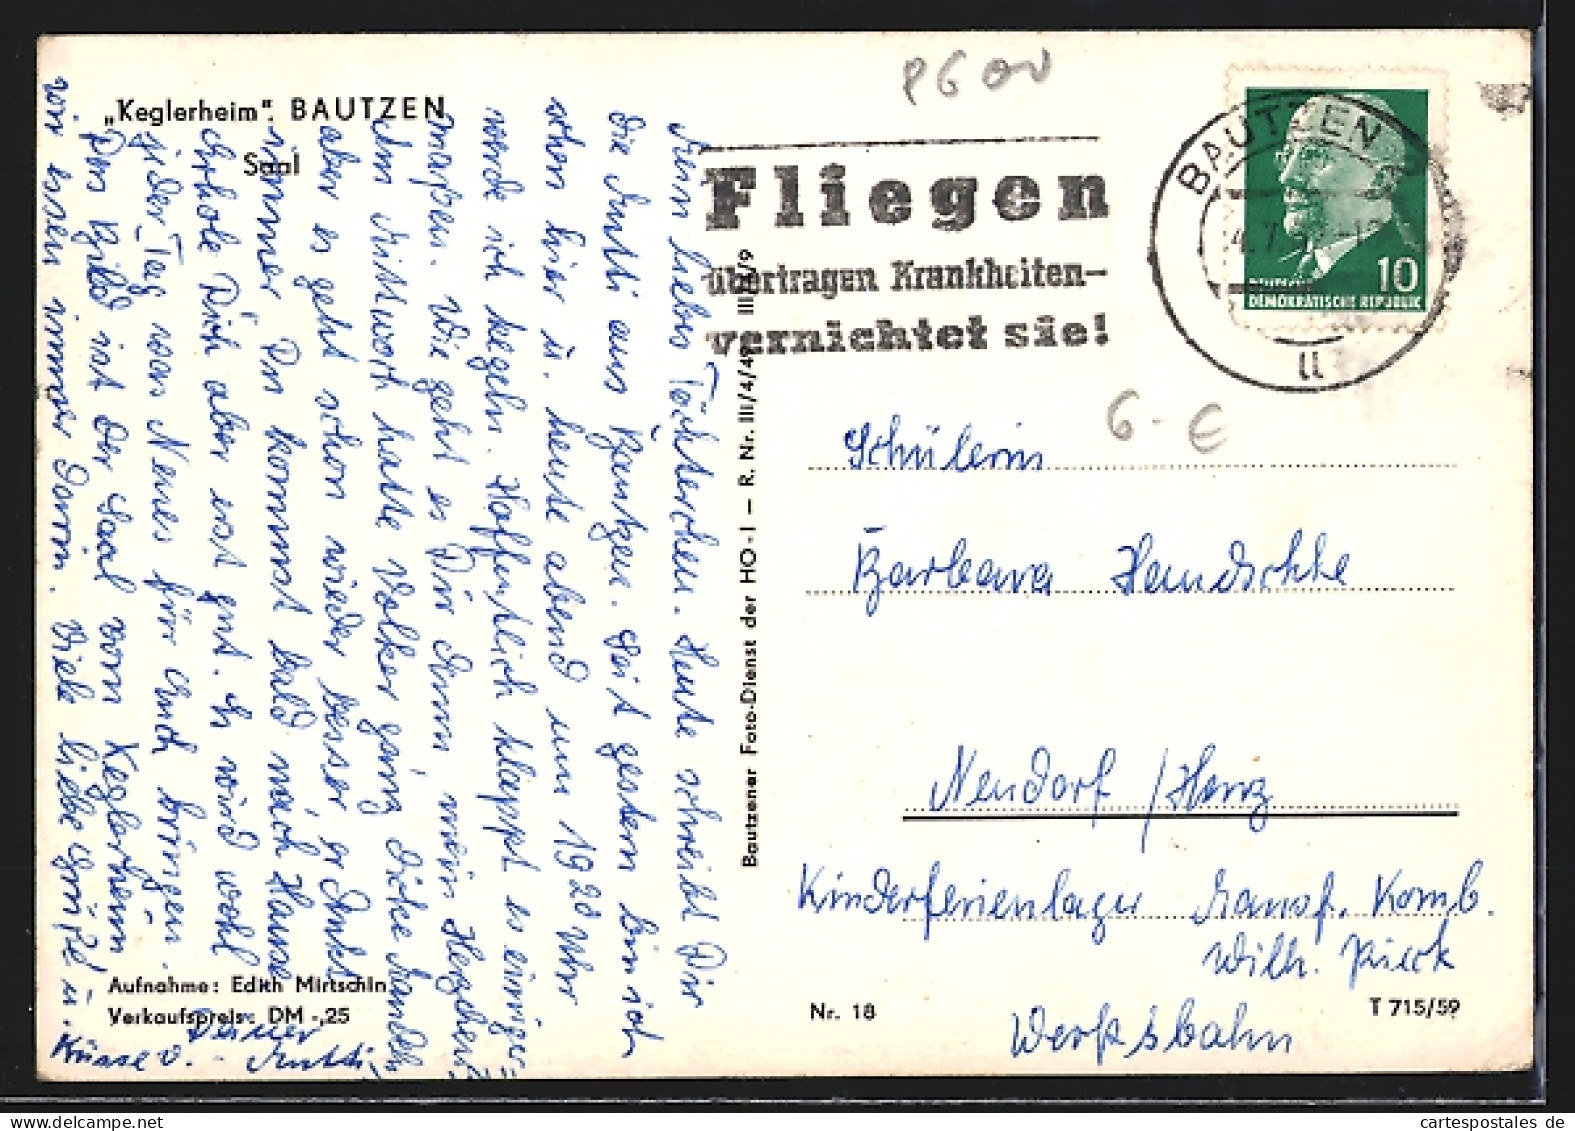 „Keglerheim“. BAUTZEN
Saal
Mein liebes Töchterchen. Heute schreibt Dir
die Mutti aus Bautzen. Seit gestern bin ich
schon hier u. heute abend um 19 20 Uhr
werde ich kegeln. Hoffentlich klappt es einiger=
maßen. Wie geht es Dir denn, mein Herzchen?
Am Mittwoch hatte Volker ganz dicke Mandeln
aber es geht schon wieder besser, er denkt
immer Du kommst bald nach Hause
Erhole Dich aber erst gut. Es wird wohl
jeder Tag was Neues für Euch bringen.
Das Bild ist der Saal vom Keglerheim
wir essen immer darin. Viele liebe Grüße u.
Küsse v. Deiner Mutti
Aufnahme: Edith Mirtschin
Verkaufspreis: DM -,25
Bautzener Foto-Dienst der HO-I — R. Nr. III/4/49 III/9
PGOV
Fliegen
übertragen Krankheiten-
vernichtet sie!
BAUTZEN
4.7.
11
10
DEMOKRATISCHE REPUBLIK
6-€
Schülerin
Barbara Handschke
Neudorf / Harz
Kinderferienlager Mansf. Komb.
Wilh. Pieck
Werksbahn
Nr. 18
T 715/59
cartespostales.de